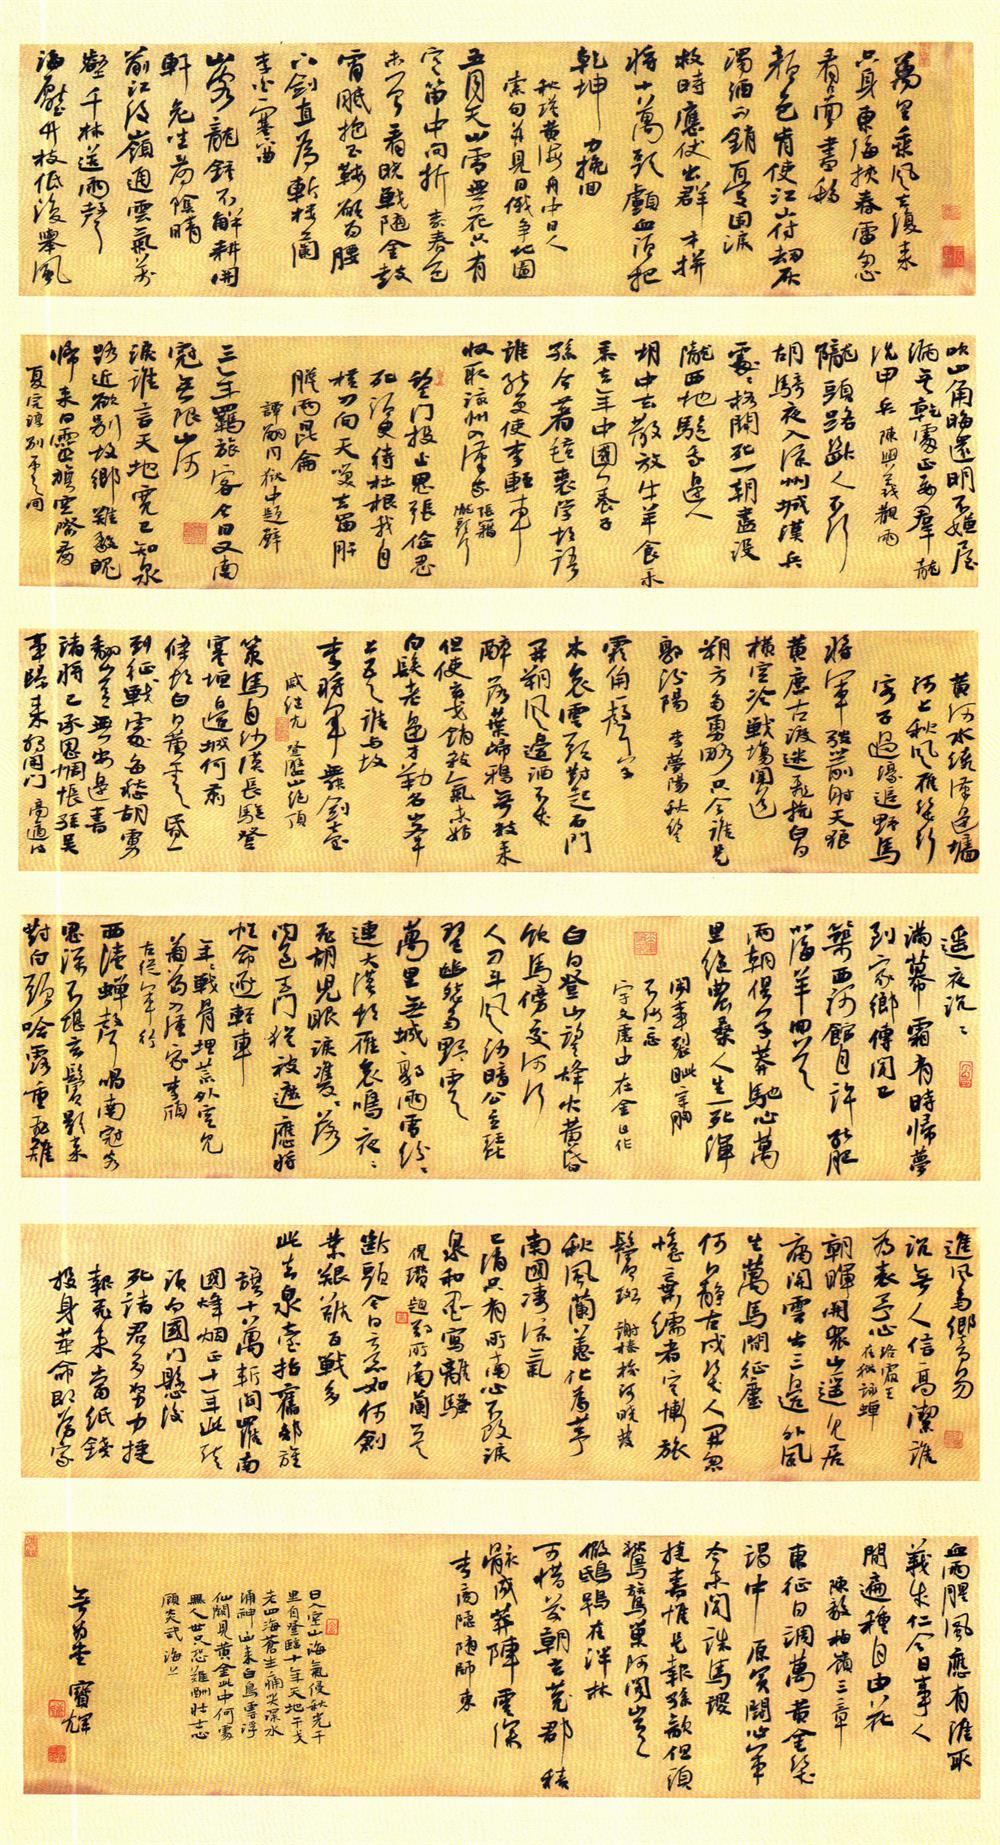 萬里乘風去復來
只身東海挾春雷忍
看圖畫移
顏色肯使江山付劫灰
濁酒不銷憂國淚
救時應仗出群才拼
將十萬頭顱血須把
乾坤力挽回
秋瑾黃海舟中日人
索句并見日俄爭地圖
五月天山雪無花只有
寒笛中聞折柳春色
未曾看曉戰隨金鼓
宵眠抱玉鞍願將腰
下劍直為斬樓蘭
李白塞下曲
山客龍鍾不解耕開
軒危坐看陰晴
前江後嶺通雲氣萬
壑千林送雨聲
海壓竹枝低復舉風
吹山角晦還明不嫌屋
漏無乾處正要群龍
洗甲兵 陳與義觀雨
隴頭路斷人不行
胡騎夜入涼州城漢兵
處處格鬥死一朝盡沒
隴西地驅我邊人
胡中去散放牛羊食禾
黍去年中國養子
孫今著氈裘學胡語
誰能更使李輕車
收取涼州入漢家 張籍
隴頭行
望門投止思張儉忍
死須臾待杜根我自
橫刀向天笑去留肝
膽兩昆侖
譚嗣同獄中題壁
三年羈旅客今日又南
冠無限山河
淚誰言天地寬已知泉
路近欲別故鄉難毅魄
歸來日靈旗空際看
夏完淳別雲間
黃河水繞漢邊墻
河上秋風雁幾行
客子過濠追野馬
將軍弢箭射天狼
黃塵古渡迷飛輓白月
橫空冷戰場聞道
朔方多勇略只今誰是
郭汾陽 李夢陽秋望
霜角一聲草
木哀雲頭對起石門
開朔風邊酒不成
醉落葉歸鴉無數來
但使玄戈銷殺氣未妨
白髮老邊才勒名峰
上吾誰與故
李將軍舞劍臺
戚繼光 登盤山絕頂
策馬自沙漠長驅登
塞垣邊城何蕭
條白日黃雲昏一
到征戰處每愁胡虜
翻豈無安邊書
諸將已承恩惆悵孫吳
事歸來獨閉門 高適
遙夜沉沉
滿幕霜有時歸夢
到家鄉傳聞已
築西河館自許能肥
北海羊回首
兩朝俱草莽馳心萬
里絕農桑人生一死渾
閑事裂眥穿胸
不汝忘
宇文虛中 在金日作
白日登山望烽火黃昏
飲馬傍交河行
人刁斗風沙暗公主琵
琶幽怨多野雲
萬里無城郭雨雪紛紛
連大漠胡雁哀鳴夜夜
飛胡兒眼淚雙雙落
聞道玉門猶被遮應將
性命逐輕車
年年戰骨埋荒外空見
蒲萄入漢家 李頎
古從軍行
西陸蟬聲唱南冠客
思深不堪玄鬢影來
對白頭吟露重飛難
進風多響易
沉無人信高潔誰
為表予心 駱賓王
在獄詠蟬
朝暉開眾山遙見居
庸關雲出三邊外風
生萬馬間征塵
何日靜古戍幾人閑忽
憶棄繻者空慚旅
鬢斑 謝榛榆河曉發
秋風蘭蕙化為茅
南國凄涼氣
已消只有所南心不改淚
泉和墨寫離騷
倪瓚題鄭所南蘭
斷頭今日意如何創
業艱難百戰多
此去泉臺招舊部旌
旗十萬斬閻羅南
國烽烟正十年此頭
須向國門懸後
死諸君多努力捷
報飛來當紙錢
投身革命即為家
血雨腥風應有涯取
義成仁今日事人
間遍種自由花
陳毅梅嶺三章
東征日調萬黃金幾
竭中原買鬥心軍
令未聞誅馬謖
捷書惟是報孫歆但須
鸑鷟巢阿閣豈
假鴟鴞在泮林
可惜前朝玄菟郡積
骸成莽陣雲深
李商隱隨師東
日入空山海氣侵秋光千
里自登臨十年天地干戈
老四海蒼生痛哭深水
涌神山來白鳥雲浮
仙闕見黃金此中何處
無人世只恐難酬壯志
顧炎武 海上
寶輝